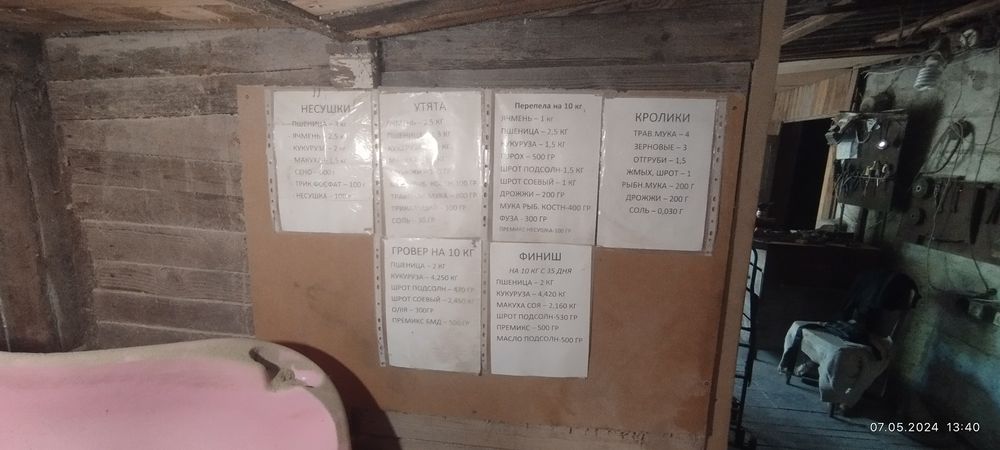 НЕСУШКИ
ПШЕНИЦА – КГ
ЯЧМЕНЬ – 2,5 КГ
КУКУРУЗА – 2 КГ
МАКУХА – 1,5 КГ
СЕНО –
ТРИК.ФОСФАТ – 100 Г
НЕСУШКА – 100 Г
УТЯТА
ЯЧМЕНЬ – 2,5 КГ
ПШЕНИЦА – 3 КГ
КУКУРУЗА
МАКУХА
ДРОЖЖИ
РЫБ. КОСТН-300 ГР
МУКА
100 ГР
СОЛЬ – 30 ГР
Перепела на 10 кг
ЯЧМЕНЬ – 1 КГ
ПШЕНИЦА – 2,5 КГ
КУКУРУЗА – 1,5 КГ
ГОРОХ – 500 ГР
ШРОТ ПОДСОЛН-1,5 КГ
ШРОТ СОЕВЫЙ – 1 КГ
ДРОЖЖИ – 200 ГР
МУКА РЫБ. КОСТН-400 ГР
ФУЗА – 300 ГР
ПРЕМИКС НЕСУШКА-100 ГР
КРОЛИКИ
ТРАВ.МУКА – 4
ЗЕРНОВЫЕ – 3
ОТГРУБИ – 1,5
ЖМЫХ, ШРОТ – 1
РЫБН.МУКА – 200 Г
ДРОЖЖИ – 200 Г
СОЛЬ – 0,030 Г
ГРОВЕР НА 10 КГ
ПШЕНИЦА – 2 КГ
КУКУРУЗА – 4,250 КГ
ШРОТ ПОДСОЛН – 470 ГР
ШРОТ СОЕВЫЙ – 2,450 КГ
ОЛІЯ – 300ГР
ПРЕМИКС БМД – 500 ГР
ФИНИШ
НА 10 КГ С 35 ДНЯ
ПШЕНИЦА – 2 КГ
КУКУРУЗА – 4,420 КГ
МАКУХА СОЯ – 2,160 КГ
ШРОТ ПОДСОЛН-530 ГР
ПРЕМИКС – 500 ГР
МАСЛО ПОДСОЛН-500 ГР
07.05.2024 13:40